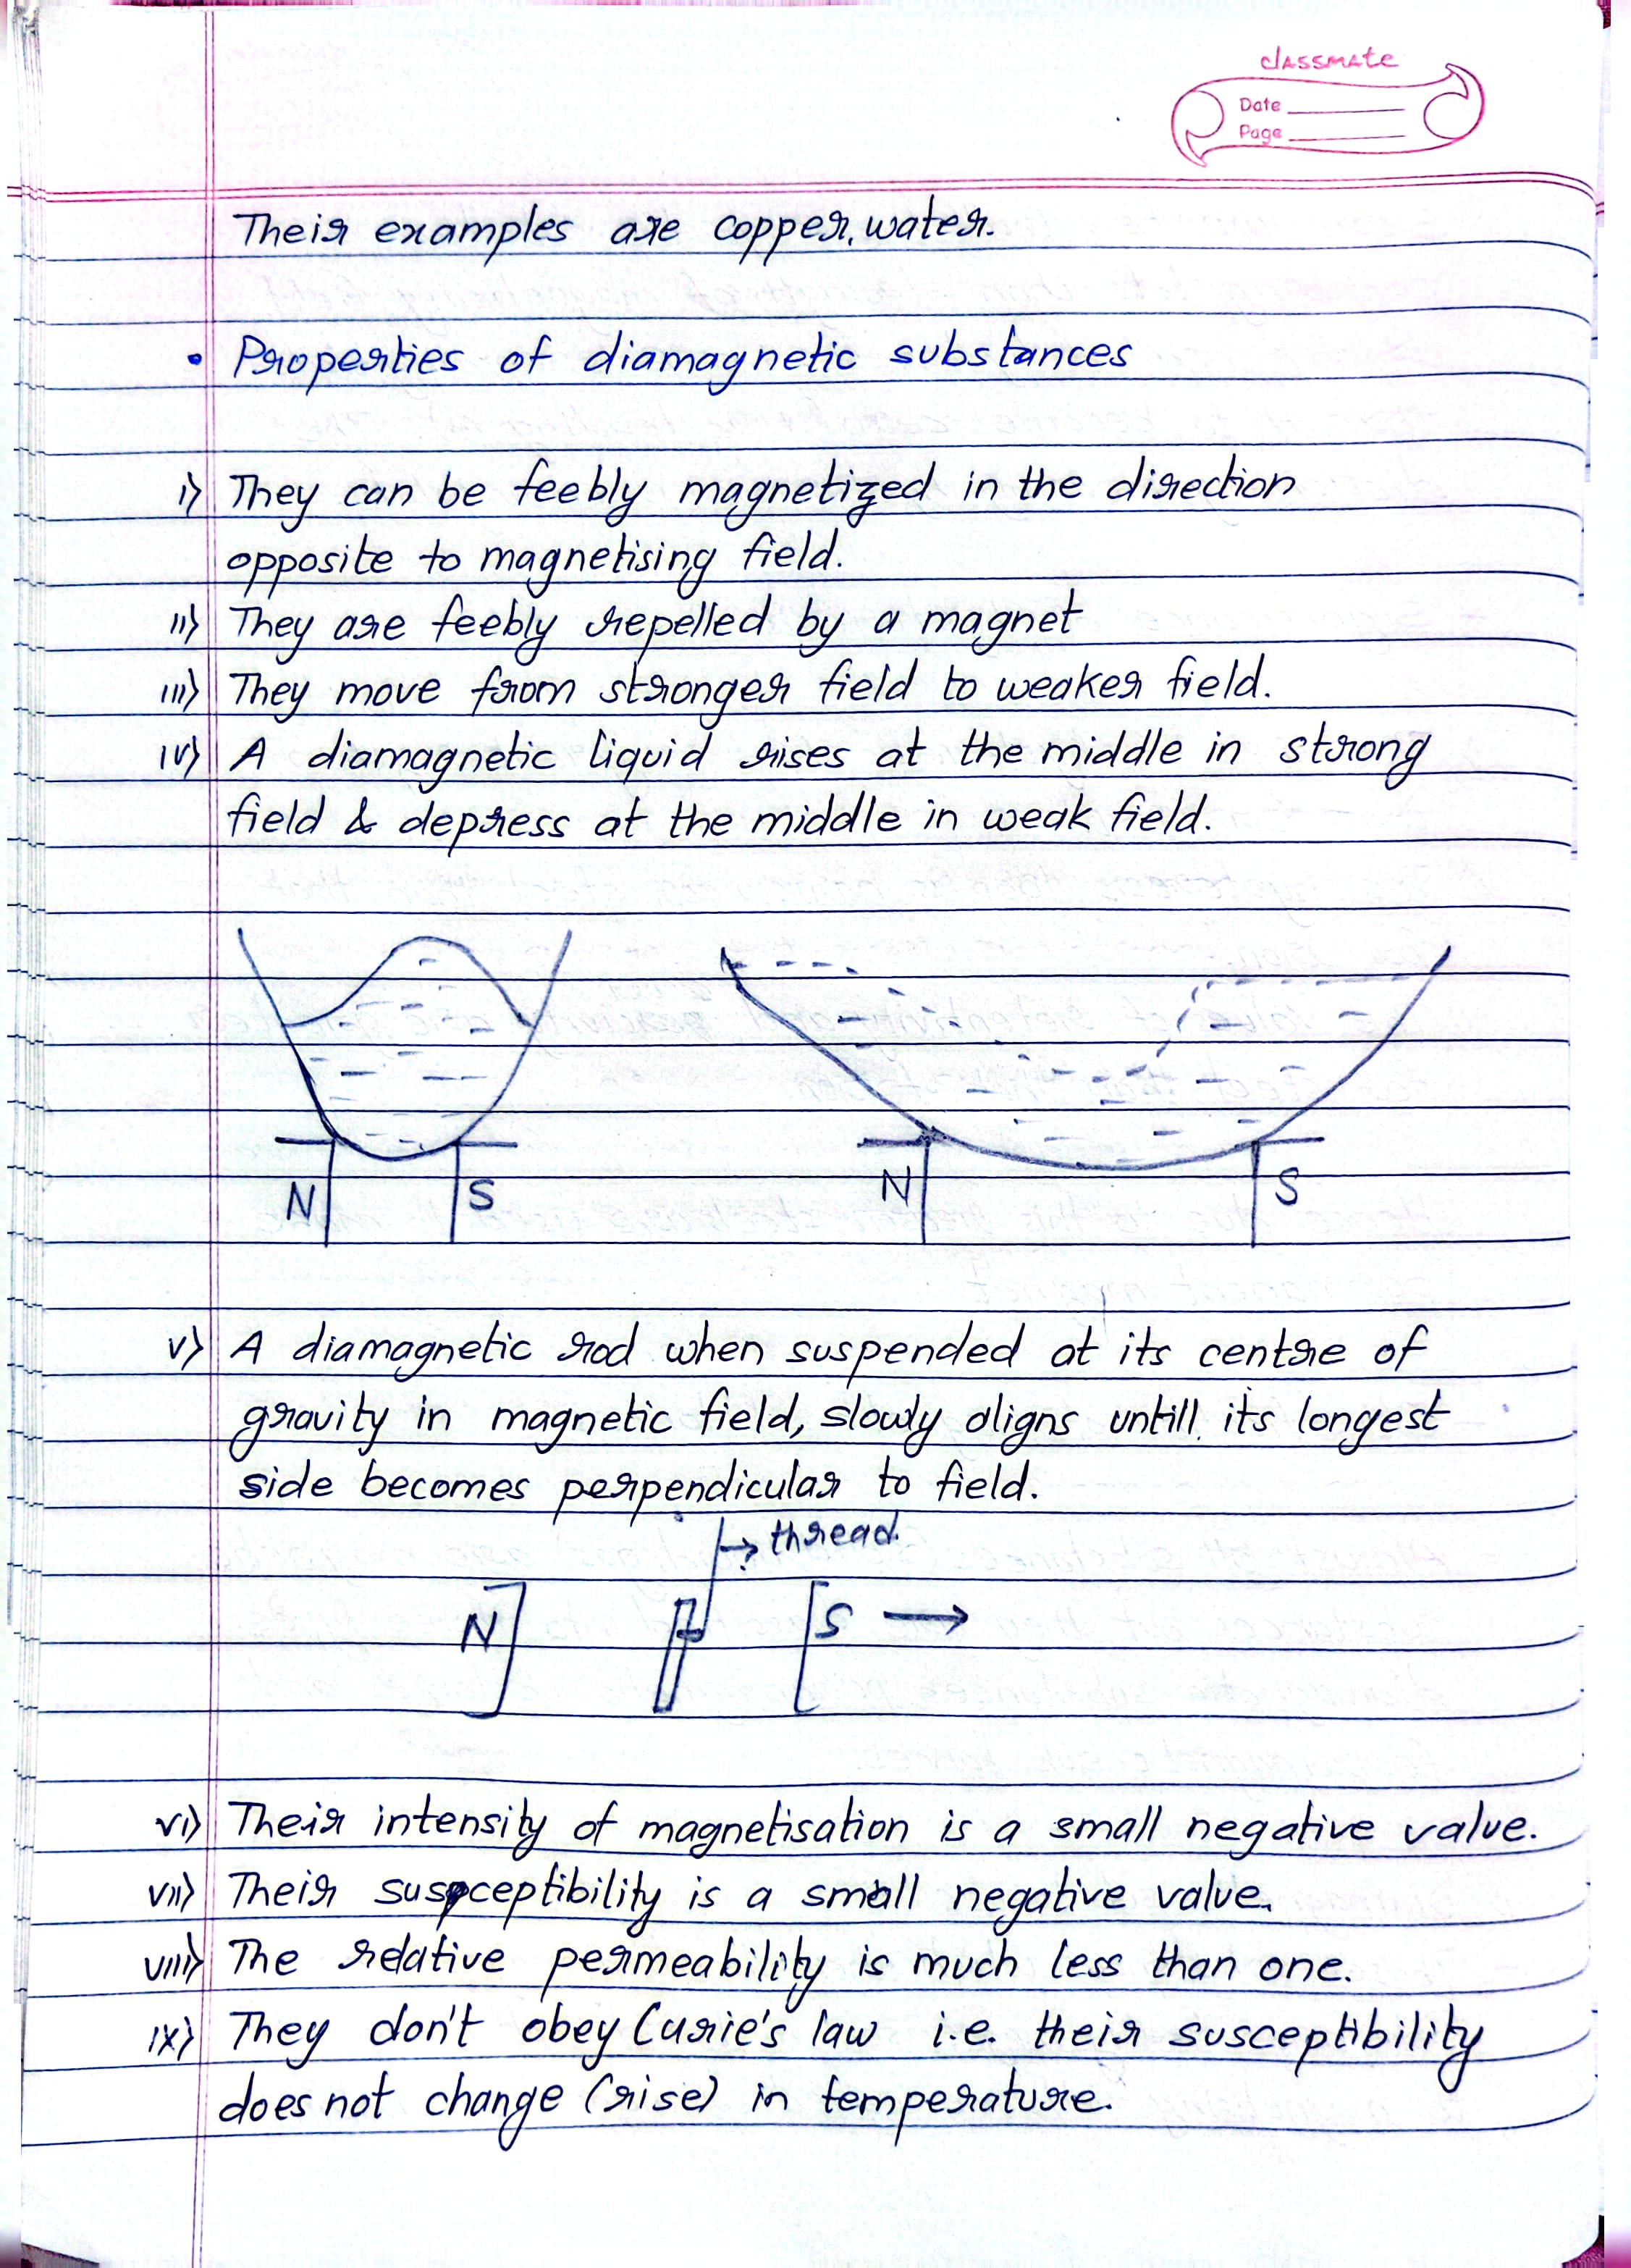 classmate
Date
Page
Their examples are copper, water.
• Properties of diamagnetic substances
i) They can be feebly magnetized in the direction
opposite to magnetising field.
ii) They are feebly repelled by a magnet
iii) They move from stronger field to weaker field.
iv) A diamagnetic liquid rises at the middle in strong
field & depress at the middle in weak field.
N S N S
v) A diamagnetic rod when suspended at its centre of
gravity in magnetic field, slowly aligns untill its longest
side becomes perpendicular to field.
→ thread
N S →
vi) Their intensity of magnetisation is a small negative value.
vii) Their susceptibility is a small negative value.
viii) The relative permeability is much less than one.
ix) They don't obey Curie's law i.e. their susceptibility
does not change (rise) in temperature.